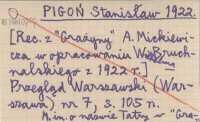 PIGOŃ Stanisław 1922.
[Rec. z "Grażyny" A. Mickiewi-
cza w opracowaniu W. Bruch-
nalskiego z 1922 r.]
Przegląd Warszawski (War-
szawa) nr 7, s. 105 n.
M.in. o nazwie Tatry w "Gra-